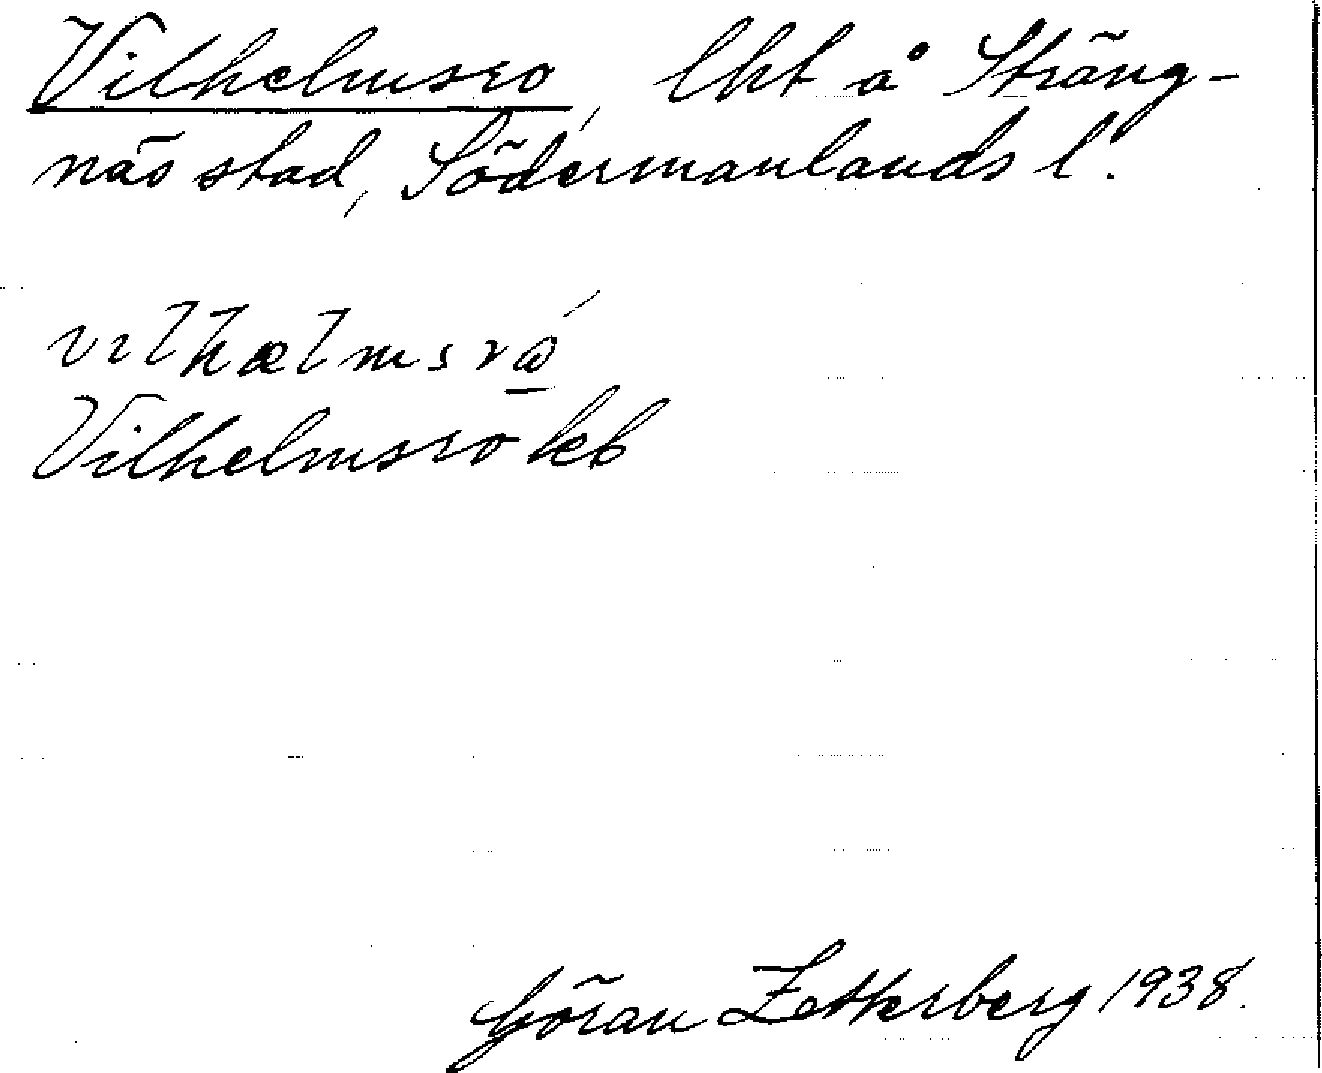 Vilhelmsro, lht å Sträng-
näs stad, Södermanlands l.
Vilhelmsro kb
Göran Zetterberg 1938.